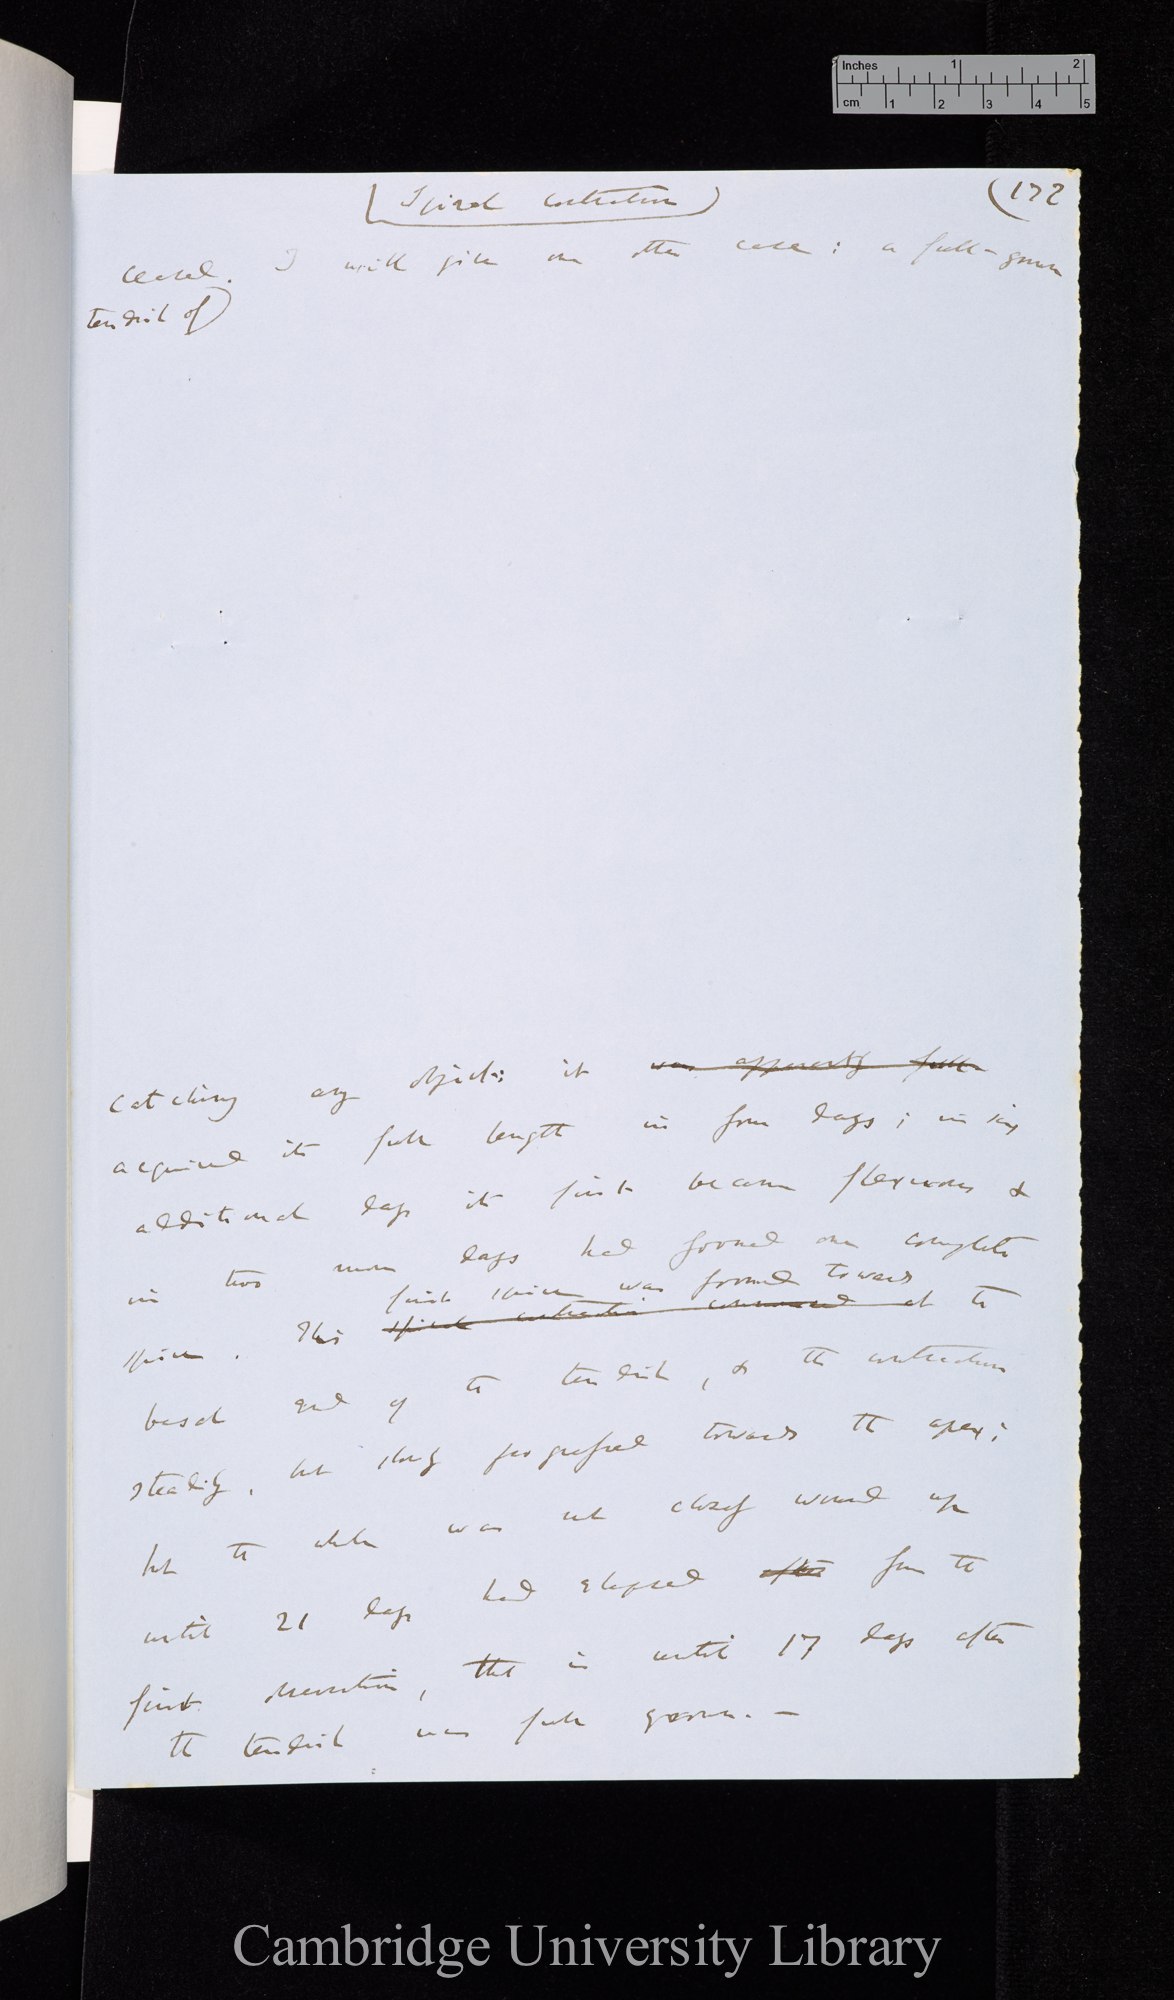 Inches 1 2
cm 1 2 3 4 5
(Spiral contraction)
(172
ceased. I will give one other case: a full-grown
tendril of)
catching any object; it was apparently full
acquired its full length in four days; in six
additional days it first became flexuous &
in two more days had formed one complete
first spire was formed towards
spire. This spiral contraction commenced at the
basal end of the tendril, & the contraction
steadily, but slowly progressed towards the apex;
but the whole was not closely wound up
until 21 days had elapsed after from the
first observation, that is until 17 days after
the tendril was full grown. —
Cambridge University Library